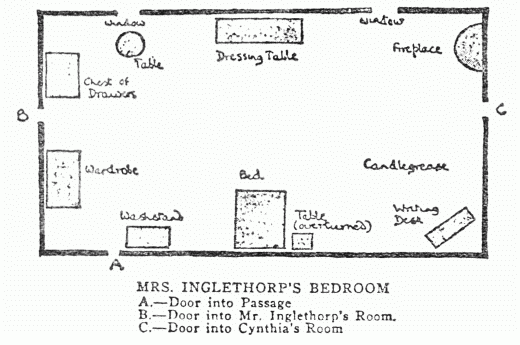 window
window
Table
Dressing Table
Fireplace
Chest of
Drawers
B
C
Wardrobe
Candlegrease
Bed
Washstand
Table
(overturned)
Writing
Desk
A
MRS. INGLETHORP'S BEDROOM
A.—Door into Passage
B.—Door into Mr. Inglethorp's Room.
C.—Door into Cynthia's Room